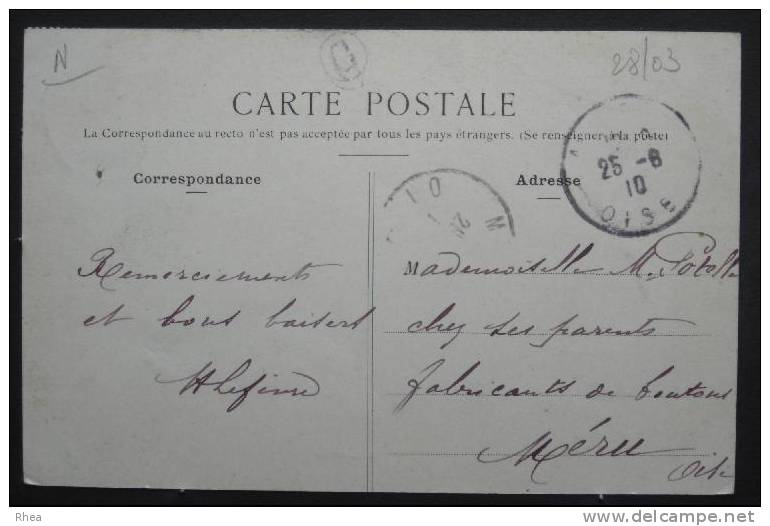 N
28/03
CARTE POSTALE
La Correspondance au recto n'est pas acceptée par tous les pays étrangers. (Se renseigner à la poste)
Correspondance
Adresse
25 -8
10
OISE
Remerciements
et bons baisers
HLefèvre
Mademoiselle M. Potelle
chez ses parents
fabricants de boutons
Méru
Oise
Rhea
delcampe.net